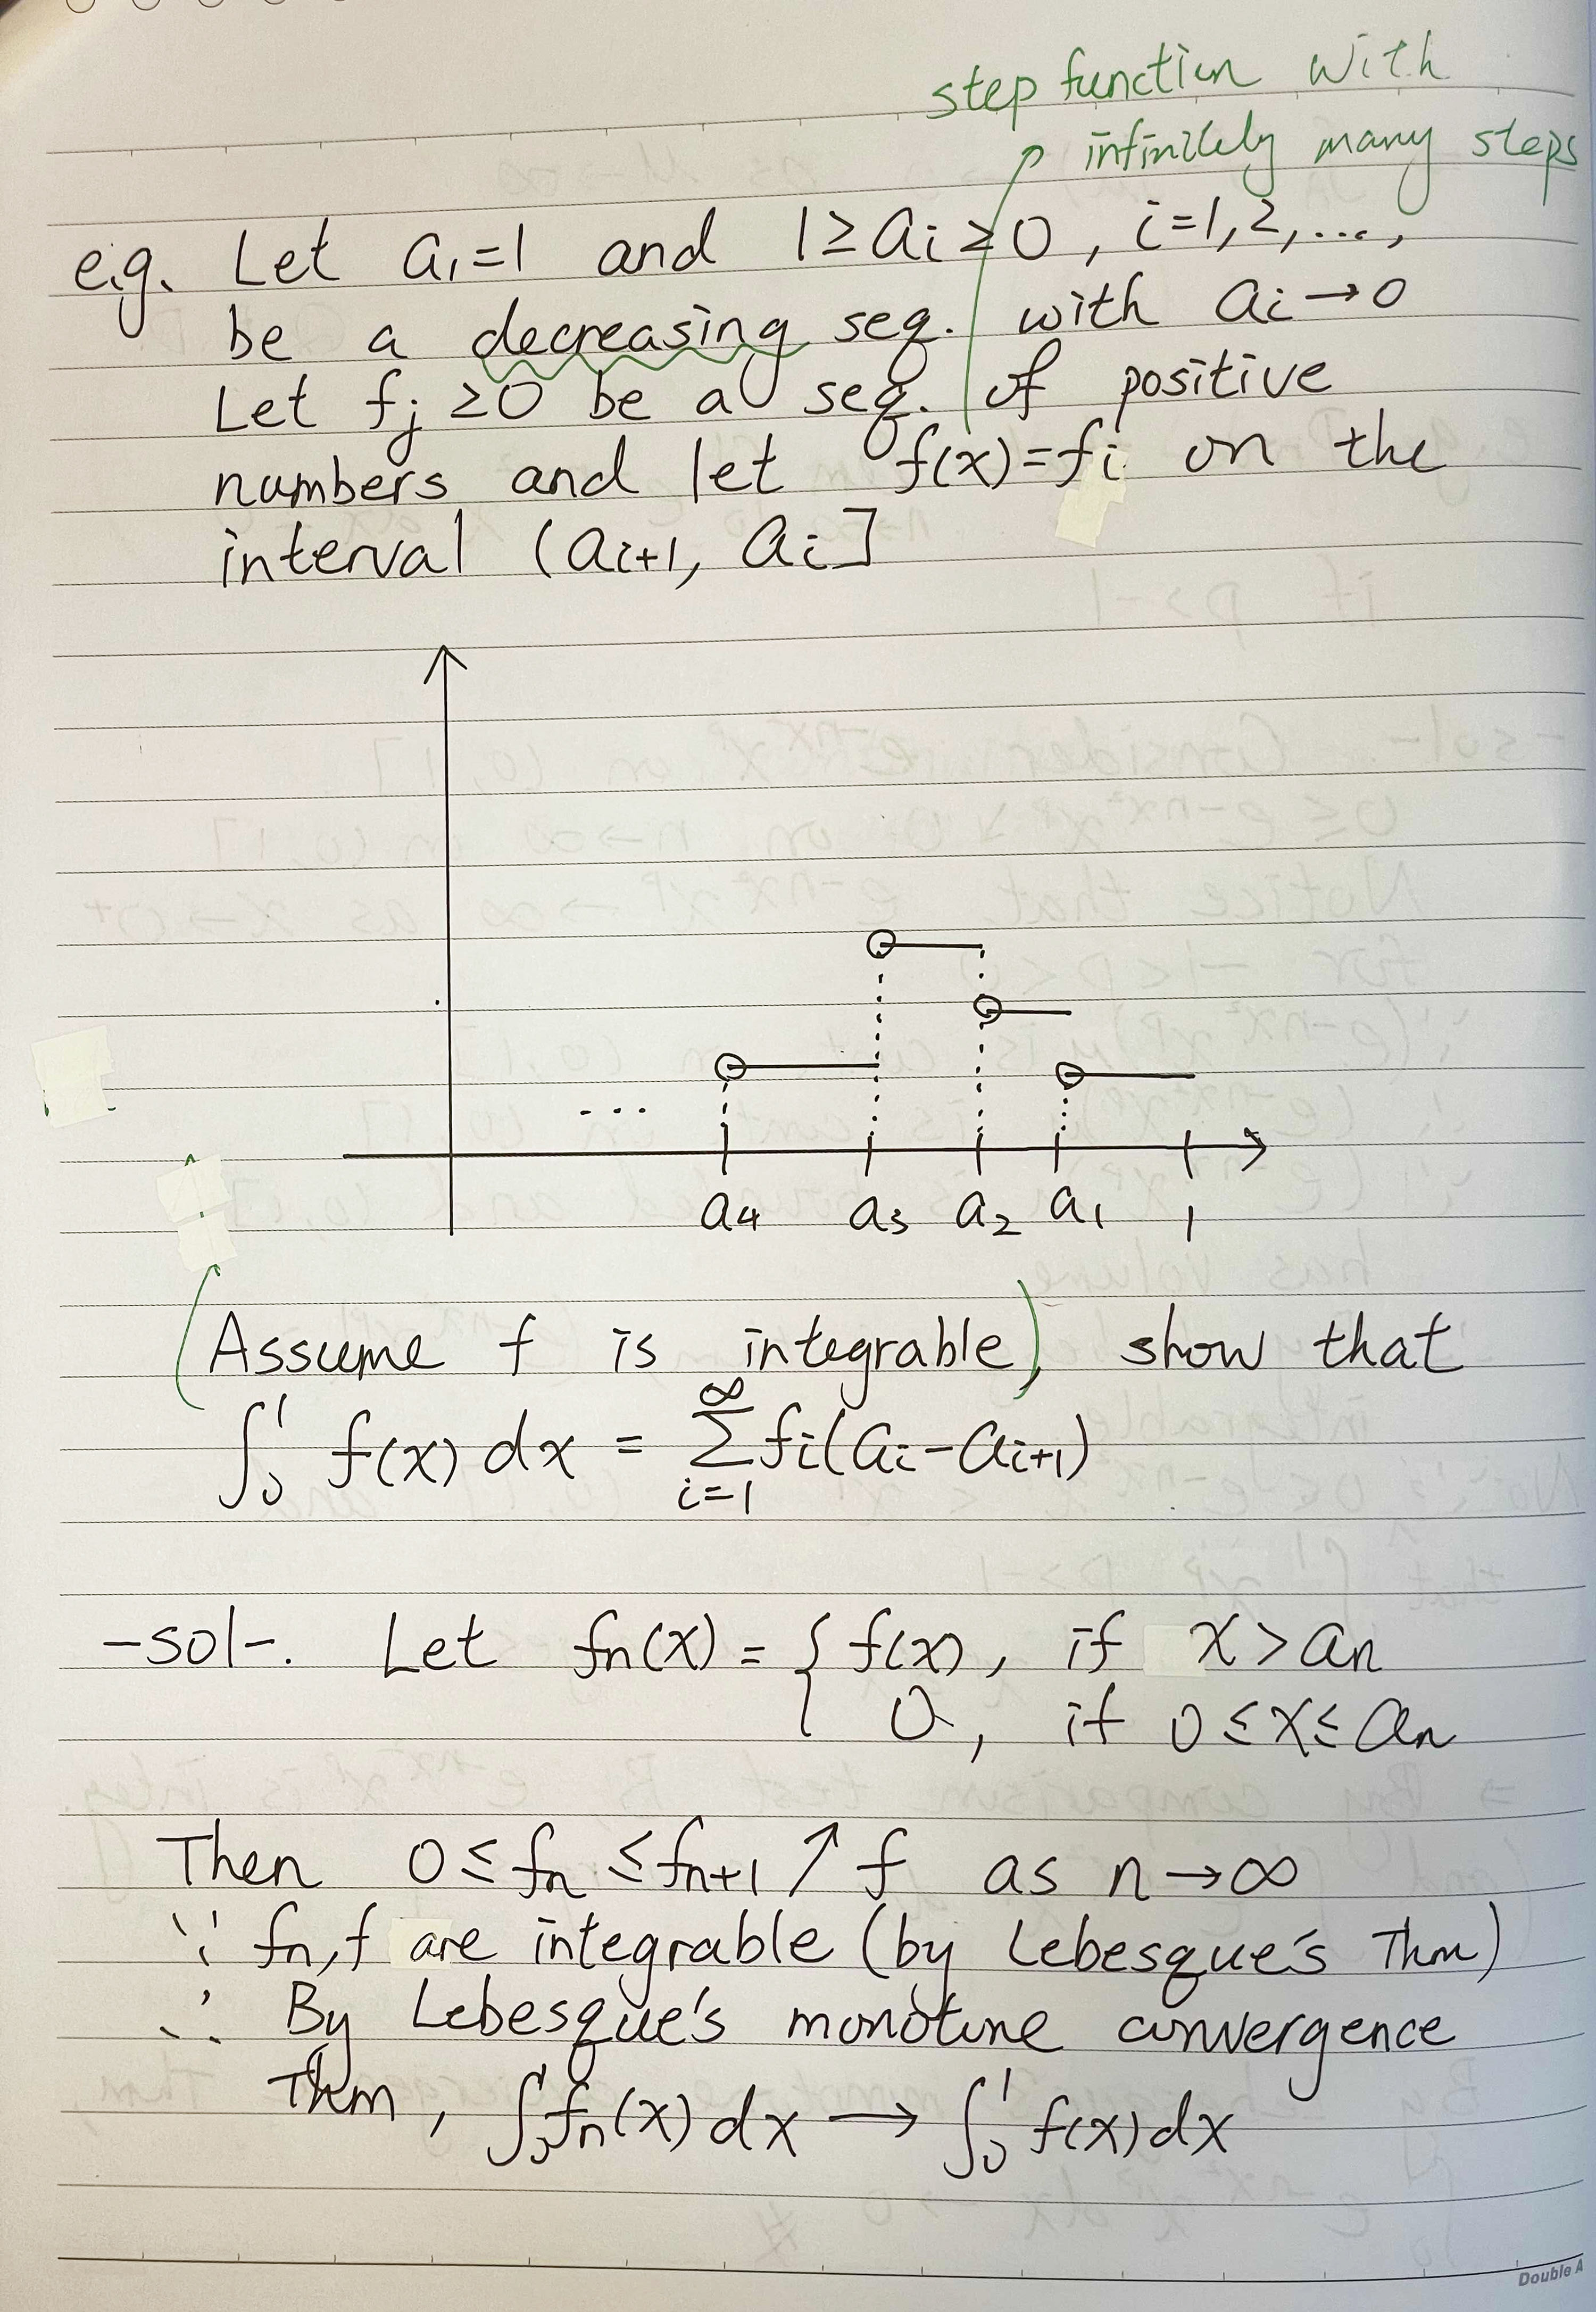 step function with
infinitely many steps
e.g. Let a₁=1 and 1≥aᵢ≥0, i=1,2,...,
be a decreasing seq. with aᵢ→0
Let fⱼ≥0 be a seq. of positive
numbers and let f(x)=fᵢ on the
interval (aᵢ₊₁, aᵢ]
...
a₄ a₃ a₂ a₁ 1
(Assume f is integrable), show that
∫₀¹ f(x) dx = ∑_{i=1}^{∞} fᵢ(aᵢ-aᵢ₊₁)
-sol-. Let fₙ(x) = { f(x), if x>aₙ
0, if 0≤x≤aₙ
Then 0≤fₙ≤fₙ₊₁↗f as n→∞
∵ fₙ,f are integrable (by Lebesgue's Thm)
∴ By Lebesgue's monotone convergence
Thm, ∫₀¹ fₙ(x) dx → ∫₀¹ f(x) dx
Double A